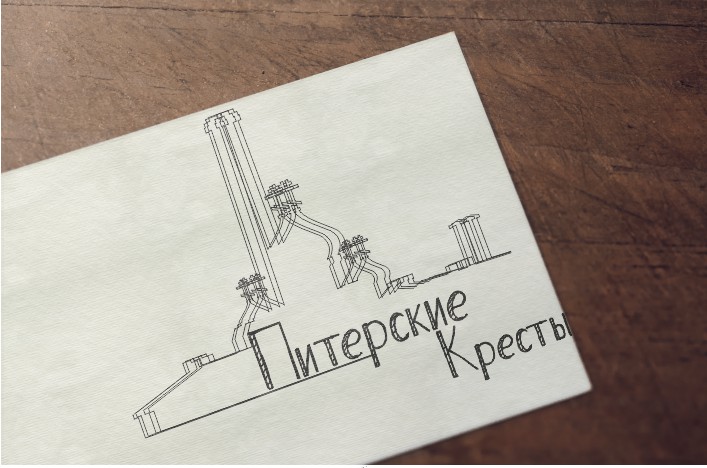 Питерские
Кресты